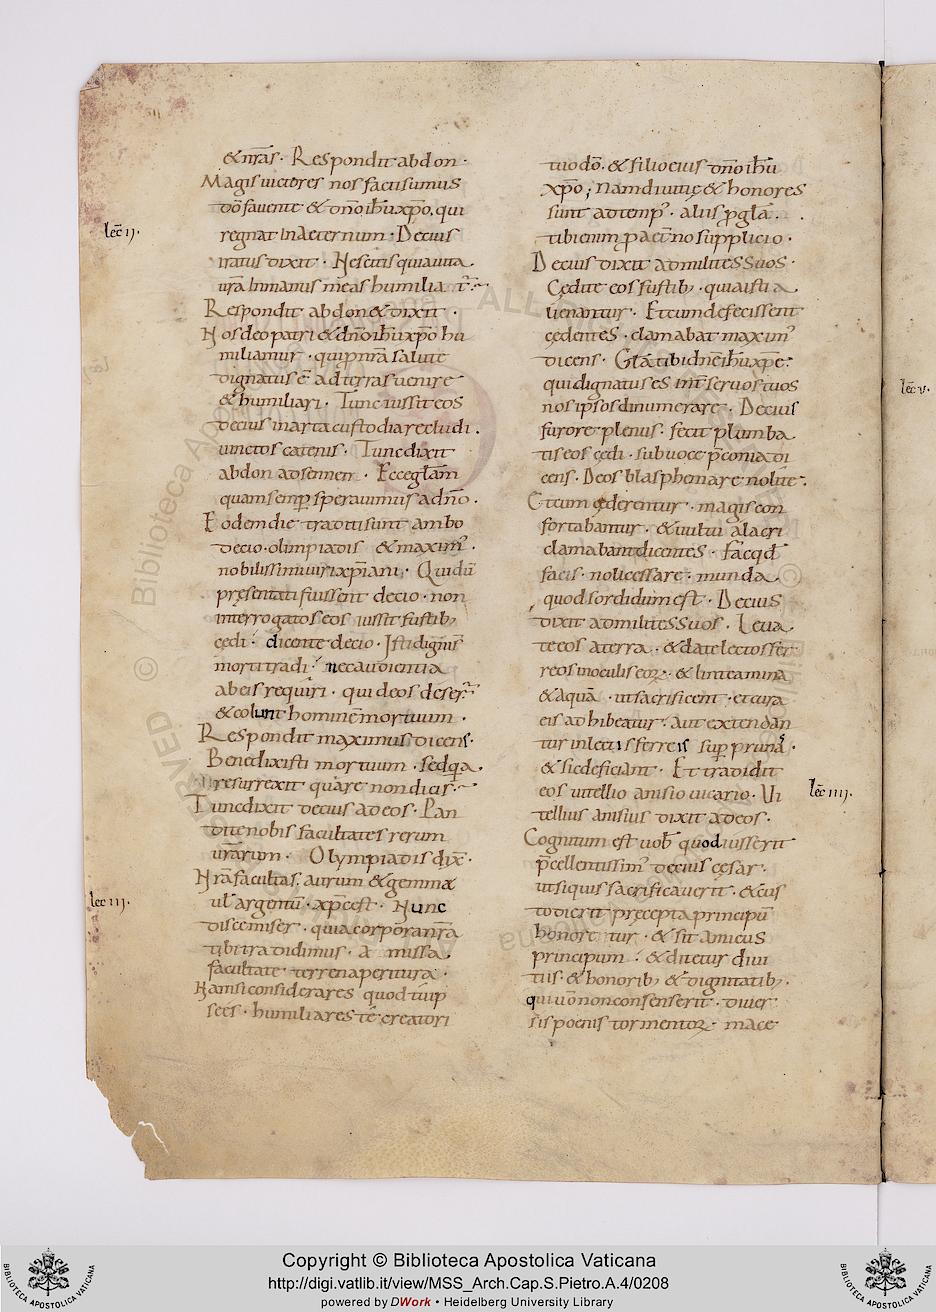 &nr̄as· Respondit abdon·
Magis uictores nos facti sumus
dō fauente & dn̄o ih̄u xp̄o, qui
lec̄ ii·
regnat in aeternum· Decius
iratus dixit· Nescitis quia uita
ur̄a in manus meas humilia
Respondit abdon & dixit·
Nos deo patri & dn̄o ih̄u xp̄o hu
miliamur· qui p nr̄a salute
dignatus ē ad terras uenire
& humiliari· Tunc iussit eos
decius in arta custodia recludi·
uinctos catenis· Tunc dixit
abdon ad sennen· Ecce gl̄am
quam semp̄ sperauimus a dn̄o·
Eodem die traditi sunt ambo
decio· olimpiadis & maxim̄·
nobilissimi uiri xp̄iani· Qui dū
pręsentati fuissent decio· non
interrogatos eos iussit fustib;
cędi· dicente decio· Isti digni s̄
morti tradi· nec audientia
ab eis requiri· qui deos deser̄
& colunt hominē mortuum·
Respondit maximus dicens·
Benedixisti mortuum· sed q̄a
resurrexit quare non dicis·
Tunc dixit decius ad eos· Pan
dite nobis facultates rerum
ur̄arum· Olympiadis dix̄·
Nr̄a facultas· aurum & gemmæ
lec̄ iii·
ul̄ argentū· xp̄c est· Nunc
disce miser· quia corpora nr̄a
tibi tradidimus· a missa
facultate terrena peritura·
Nam si considerares quod tu ip
se es· humiliares te creatori
tuo dō· & filio eius dn̄o ih̄u
xp̄o; nam diuitię & honores
sunt ad temp̄· aliis p gl̄a·
tibi enim p aet̄no supplicio·
Decius dixit ad milites suos·
Cędite eos fustib; quia ista
uenantur· Et cum defecissent
cędentes· clamabat maxim̄
dicens· Gl̄a tibi dn̄e ih̄u xp̄e·
qui dignatus es int̄ seruos tuos
lec̄ v·
nos ipsos dinumerare· Decius
furore plenus· fecit plumba
tis eos cędi· sub uoce p̄conia di
cens· Deos blasphemare nolite·
Et cum cęderentur· magis con
fortabantur· & uultu alacri
clamabant dicentes· fac q̄d
facis· noli cessare· munda
quod sordidum est· Decius
dixit ad milites suos· Leua
te eos a terra· & date lectos fer
reos in oculis eoꝝ· & linteamina
& aquā· ut sacrificent· et cura
eis adhibeatur· Aut extendan
tur in lectis ferreis sup̄ prunas·
& sic deficiant· Et tradidit
eos uitellio anisio uicario· Vi
lec̄ iiii·
tellius anisius dixit ad eos·
Cognitum est uob̄ quod iusserit
p̄cellentissim̄ decius cęsar·
ut si quis sacrificauerit· & cus
todierit pręcepta principū
honoretur· & sit amicus
principum· & ditetur diui
tiis & honorib; & dignitatib;
qui uō non consenserit· diuer
sis poenis tormentoꝝ· mace
Copyright © Biblioteca Apostolica Vaticana
http://digi.vatlib.it/view/MSS_Arch.Cap.S.Pietro.A.4/0208
powered by DWork • Heidelberg University Library
BIBLIOTECA APOSTOLICA VATICANA
BIBLIOTECA APOSTOLICA VATICANA